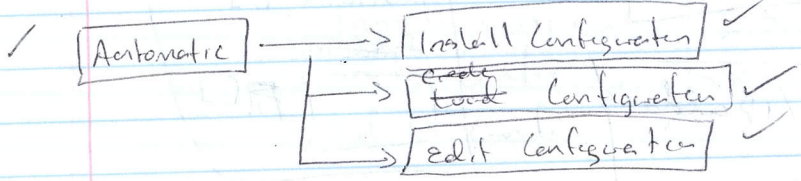 Automatic
Install Configuration
Create
Configuration
Edit Configuration